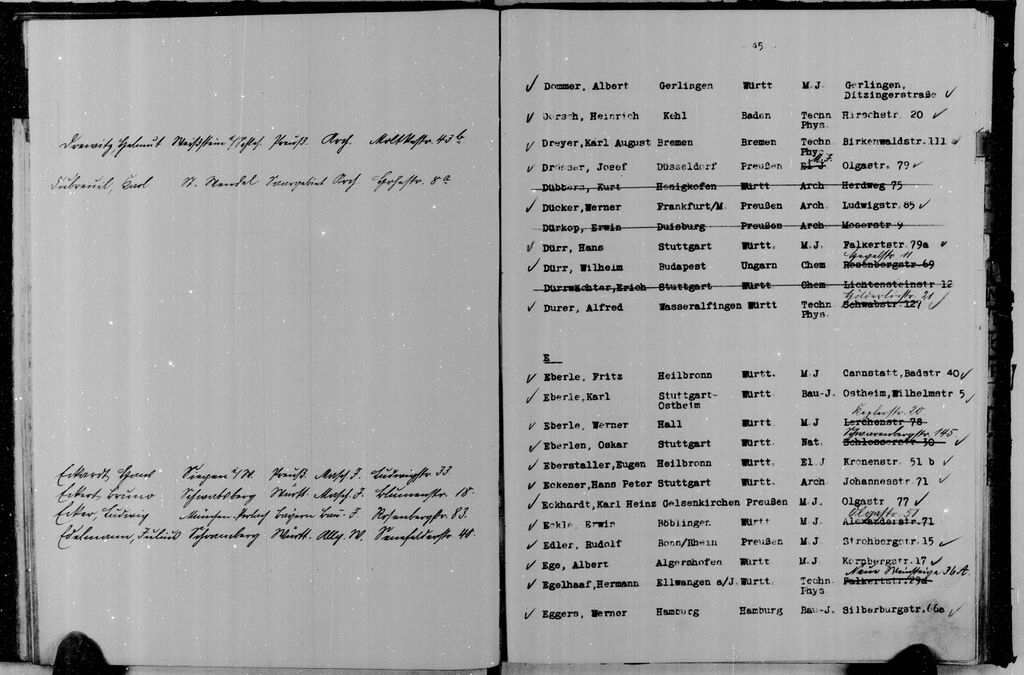 Drewitz Helmut Weißstein i/Schles. Preuß. Arch. Moltkestr. 43 b
Dubreuil, Karl St. Wendel Saargebiet Arch Hohestr. 8a
Eckardt Hans Siegen i/W. Preuß. Masch. J. Ludwigstr 33
Eckert Bruno Schwabsberg Württ. Masch J. Blumenstr. 18.
Ecker, Ludwig München- Bayern Bau-J. Rosenbergstr. 83.
Edelmann, Julius Schramberg Württ. Allg. W. Senefelderstr 40.
- 45 -
✓ Dommer, Albert Gerlingen Württ M.J Gerlingen,
Ditzingerstraße ✓
✓ Dorsch, Heinrich Kehl Baden Techn Hirschstr. 20 ✓
Phys.
✓ Dreyer,Karl August Bremen Bremen Techn. Birkenwaldstr.111
Phys.
M.J.
✓ Drösser, Josef Düsseldorf Preußen El J Olgastr. 79 ✓
Dübbers, Kurt Honigkofen Württ Arch Herdweg 75
✓ Dücker,Werner Frankfurt/M. Preußen Arch. Ludwigstr.85 ✓
Dürkop, Erwin Duisburg Preußen Arch Moserstr 9
✓ Dürr, Hans Stuttgart Württ. M.J. Falkertstr.79a ✓
Hegelstr 11
✓ Dürr, Wilhelm Budapest Ungarn Chem Rosenbergstr 69
Dürrwächter,Erich Stuttgart Württ. Chem Lichtensteinstr 12
Hölderlinstr. 21
✓ Durer, Alfred Wasseralfingen Württ Techn Schwabstr 124 ✓
Phys.
E
✓ Eberle, Fritz Heilbronn Württ. M.J Cannstatt,Badstr 40 ✓
✓ Eberle,Karl Stuttgart- Württ. Bau-J. Ostheim,Wilhelmstr 5 ✓
Ostheim
Keplerstr. 20.
✓ Eberle, Werner Hall Württ. M.J Lerchenstr 78
Schwarenbergstr. 145
✓ Eberlen, Oskar Stuttgart Württ. Nat. Schlosserstr 30 ✓
✓ Eberstaller,Eugen Heilbronn Württ. El.J Kronenstr. 51 b ✓
✓ Eckener,Hans Peter Stuttgart Württ. Arch. Johannesstr. 71 ✓
✓ Eckhardt,Karl Heinz Gelsenkirchen Preußen M.J. Olgastr 77 ✓
Olgastr. 51
✓ Eckle, Erwin Böblingen Württ M.J Alexanderstr.71
✓ Edler, Rudolf Bonn/Rhein Preußen M.J. Strohbergstr.15 ✓
✓ Ege, Albert Algershofen Württ M.J Kornbergstr.17 ✓
Neue Weinsteige 36 A.
✓ Egelhaaf,Hermann Ellwangen a/J. Württ. Techn. Falkertstr.29d
Phys.
✓ Eggers, Werner Hamburg Hamburg Bau-J. Silberburgstr.66a ✓